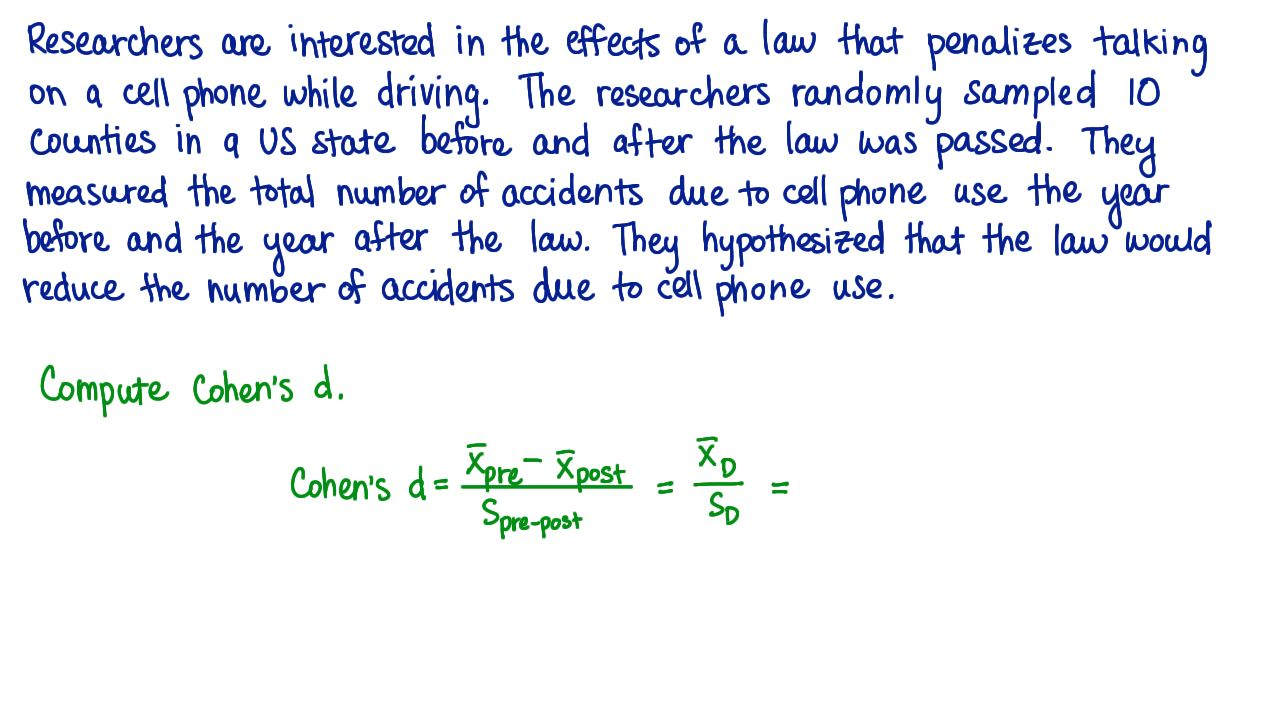 Researchers are interested in the effects of a law that penalizes talking
on a cell phone while driving. The researchers randomly sampled 10
counties in a US state before and after the law was passed. They
measured the total number of accidents due to cell phone use the year
before and the year after the law. They hypothesized that the law would
reduce the number of accidents due to cell phone use.
Compute Cohen's d.
Cohen's d = (x̄_pre - x̄_post) / S_pre-post = x̄_D / S_D =